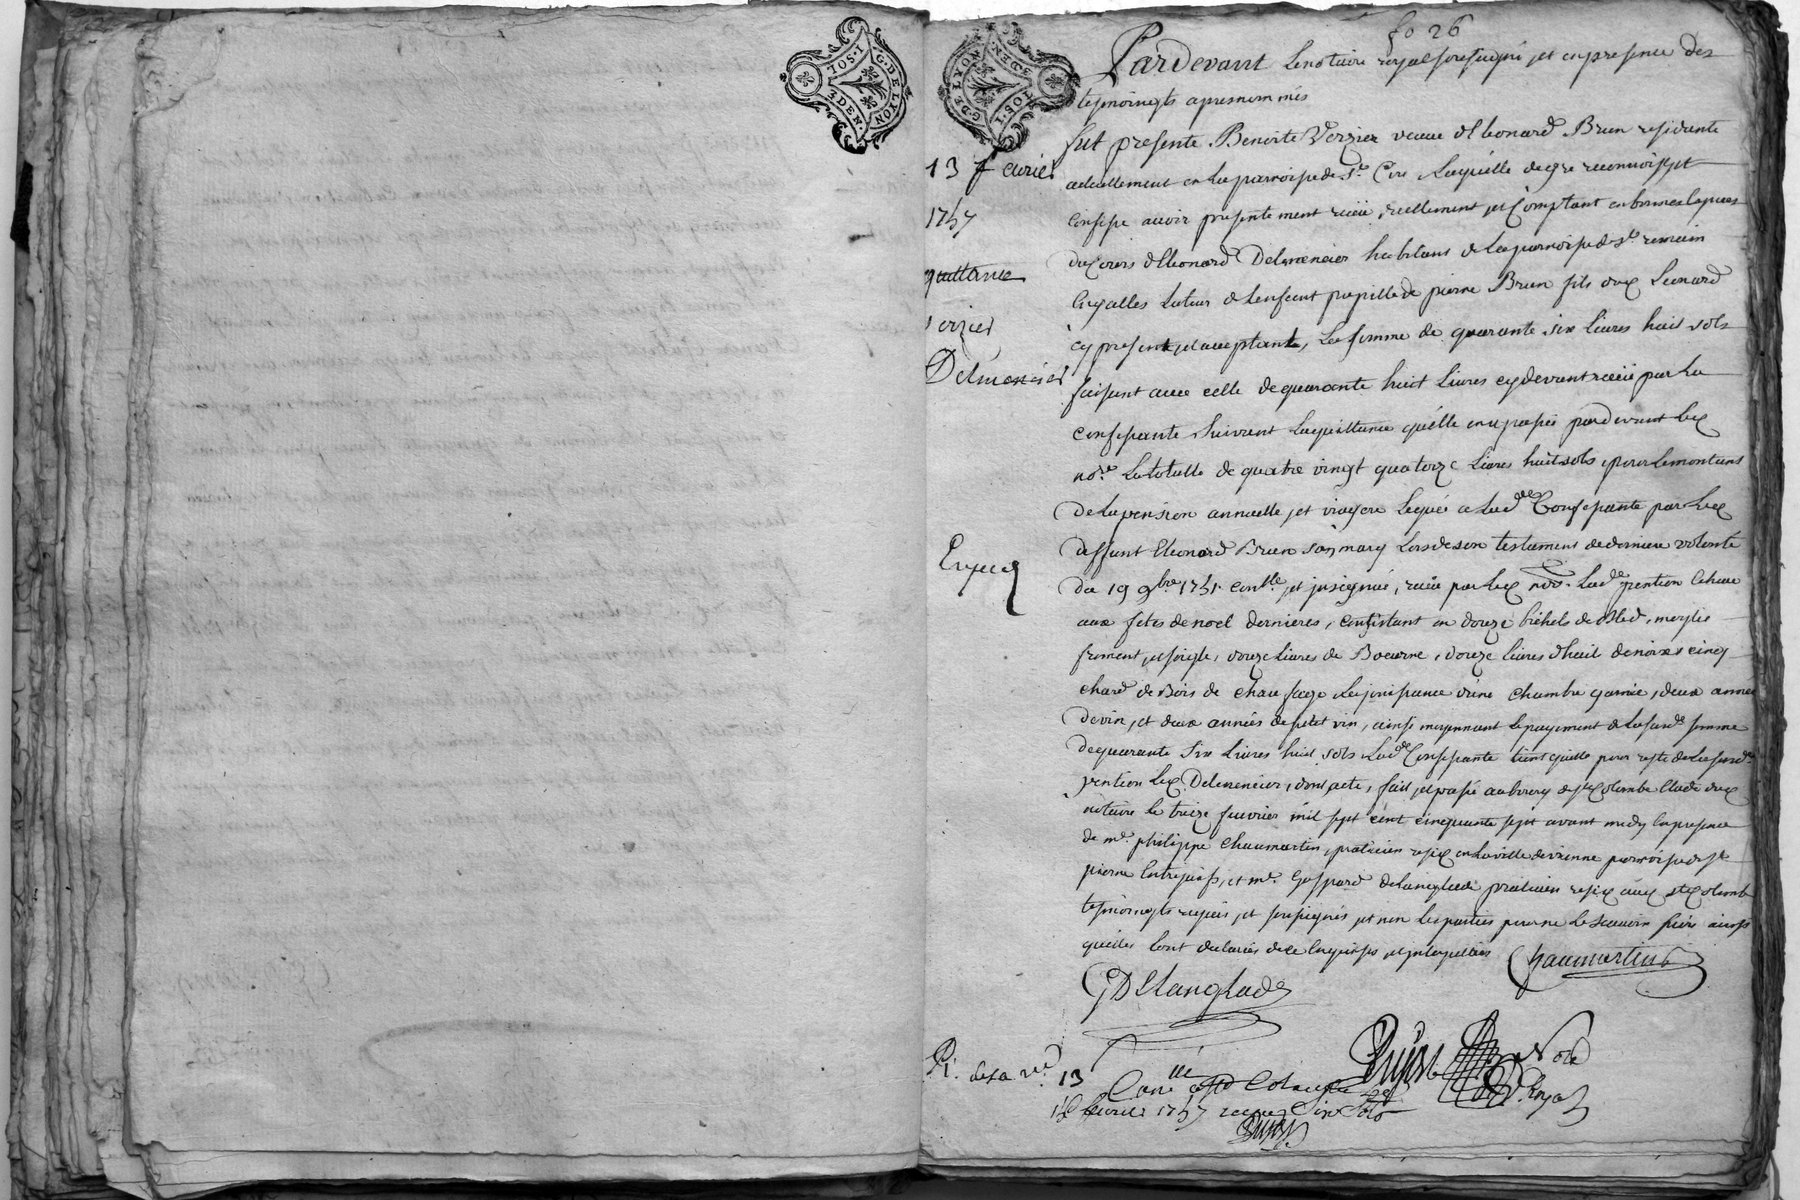 fo 26
G. DE LYON
1. SOL
3 DEN.
G. DE LYON
1. SOL
3 DEN.
Pardevant le notaire royal soussigné, et en presence des
tesmoingts apres nommés
fut presente Benoite Verzier veuve d'Eleonard Brun residante
actuellement en la parroisse de St. Cire laquelle de gre reconnoist et
confesse avoir presentement receü, reellement, et Comptant en bonnes especes
du cours d'Eleonard Delmeneier habitant de la parroisse de St. remain
tuteur de l'enfant pupille de pierre Brun fils dud. Leonard
cy present, et acceptant, la somme de quarante six livres huit sols
faisant avec celle de quarante huit livres cy devant receü par la
confessante suivant la quittance qu'elle en a passé pardevant led.
nore. la totalle de quatre vingt quatorze livres huit sols, pour le montant
de la pension annuelle, et viagere leguée a lade. Confessante par led.
deffunt Eleonard Brun son mary lors de son testament de derniere volonté
du 19 9bre 1751 conlle. et insignué, receü par led. nore. lade. pention echeue
aux fetes de noel dernieres, consistant en douze bichets de bled, meytie
froment, et seigle, douze livres de Beurre, douze livres d'huil de noix cinq
chard de Bois de chaufage la jouissance d'une chambre garnie, deux annés
de vin, et deux annés de petit vin, ainsi moyennant le payement de la susde. somme
de quarante six livres huit sols lade. Confessante tient quitte pour reste de la susde.
pention led. Delmeneier, dont acte, fait, et passé au bourg de ste Colombe etude dud.
notaire le treize fevrier mil sept cent cinquante sept avant midy en presence
de me. philippe Chaumartin, praticien resid. en la ville de vienne parroisse de St
pierre, et me. Gaspard delanglade praticien resid. aud. ste Colombe
tesmoingts requis, et soussignés, et non les parties pour ne le scavoir faire ainsi
qu'elles l'ont declarés de ce enquises, et interpellées
Chaumartin
GDelanglade
13 fevrier
1757
quittance
Verzier
Delmeneier
Expedié
13
fevrier 1757 receu six sols